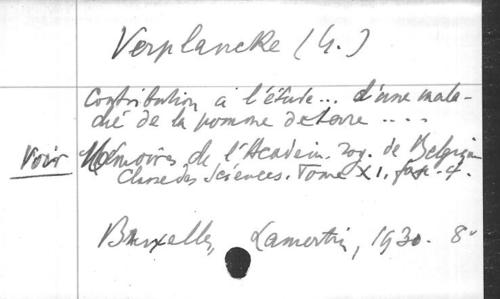 Verplancke (G.)
Contribution à l'étude... d'une mala-
die de la pomme de terre ....
Voir Mémoires de l'Academ. roy. de Belgique
Classe des Sciences. Tome XI, fasc. 4.
Bruxelles, Lamertin, 1930. 8°